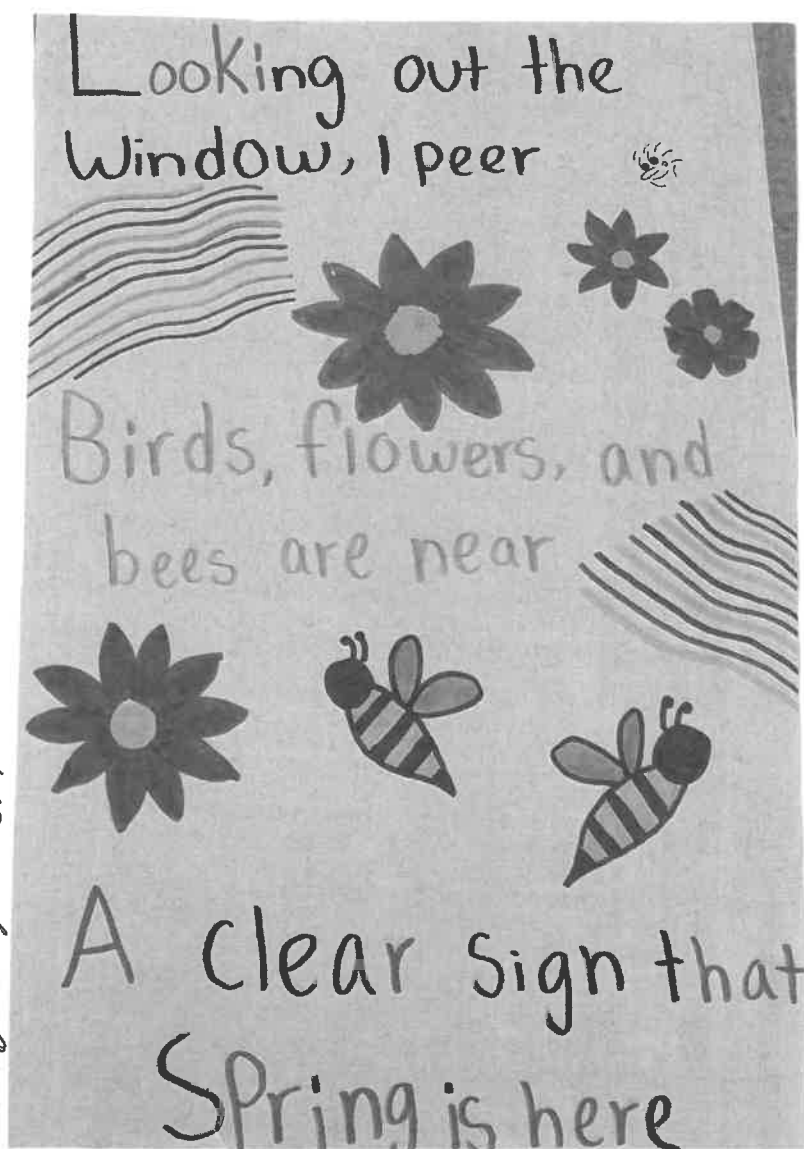 Looking out the
Window, I peer
Birds, flowers, and
bees are near
A clear sign that
Spring is here